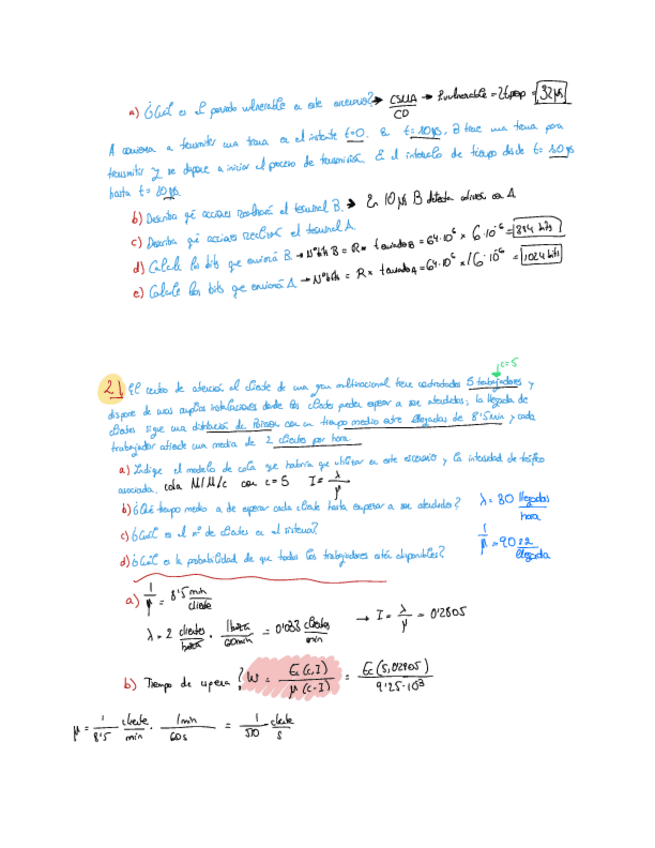 a) ¿Cuál es el periodo vulnerable en este escenario? → CSMA/CD → tvulnerable = 2tprop = 32 μs
A comienza a transmitir una trama en el instante t=0. En t=10μs, B tiene una trama para
transmitir y se dispone a iniciar el proceso de transmisión. En el intervalo de tiempo desde t=10μs
hasta t=80μs.
b) Describa qué acciones realizará el terminal B. → En 10 μs B detecta en A
c) Describa qué acciones realizará el terminal A.
d) Calcule los bits que enviará B → NºbitsB = R × tenviadoB = 64·10⁶ × 6·10⁻⁶ = 384 bits
e) Calcule los bits que enviará A → Nºbits = R × tenviadoA = 64·10⁶ × 16·10⁻⁶ = 1024 bits
c=5
2) El centro de atención al cliente de una gran multinacional tiene contratados 5 trabajadores y
dispone de unas amplias instalaciones donde los clientes pueden esperar a ser atendidos; la llegada de
clientes sigue una distribución de Poisson con un tiempo medio entre llegadas de 8'5min y cada
trabajador atiende una media de 2 clientes por hora
a) Indique el modelo de cola que habría que utilizar en este escenario y la intensidad de tráfico
asociada. cola M/M/c con c=5 I = λ/μ
b) ¿Qué tiempo medio ha de esperar cada cliente hasta empezar a ser atendidos? λ = 30 llegadas/hora
c) ¿Cuál es el nº de clientes en el sistema?
1/μ = 90 /llegada
d) ¿Cuál es la probabilidad de que todos los trabajadores estén disponibles?
a) 1/μ = 8'5 min/cliente
λ = 2 clientes/hora · 1hora/60min = 0'033 clientes/min → I = λ/μ = 0'2805
b) Tiempo de espera? W = Ec(c,I)/μ(c-I) = Ec(5,0'2805)/9'25·10³
μ = 1/8'5 cliente/min · 1min/60s = 1/510 cliente/s